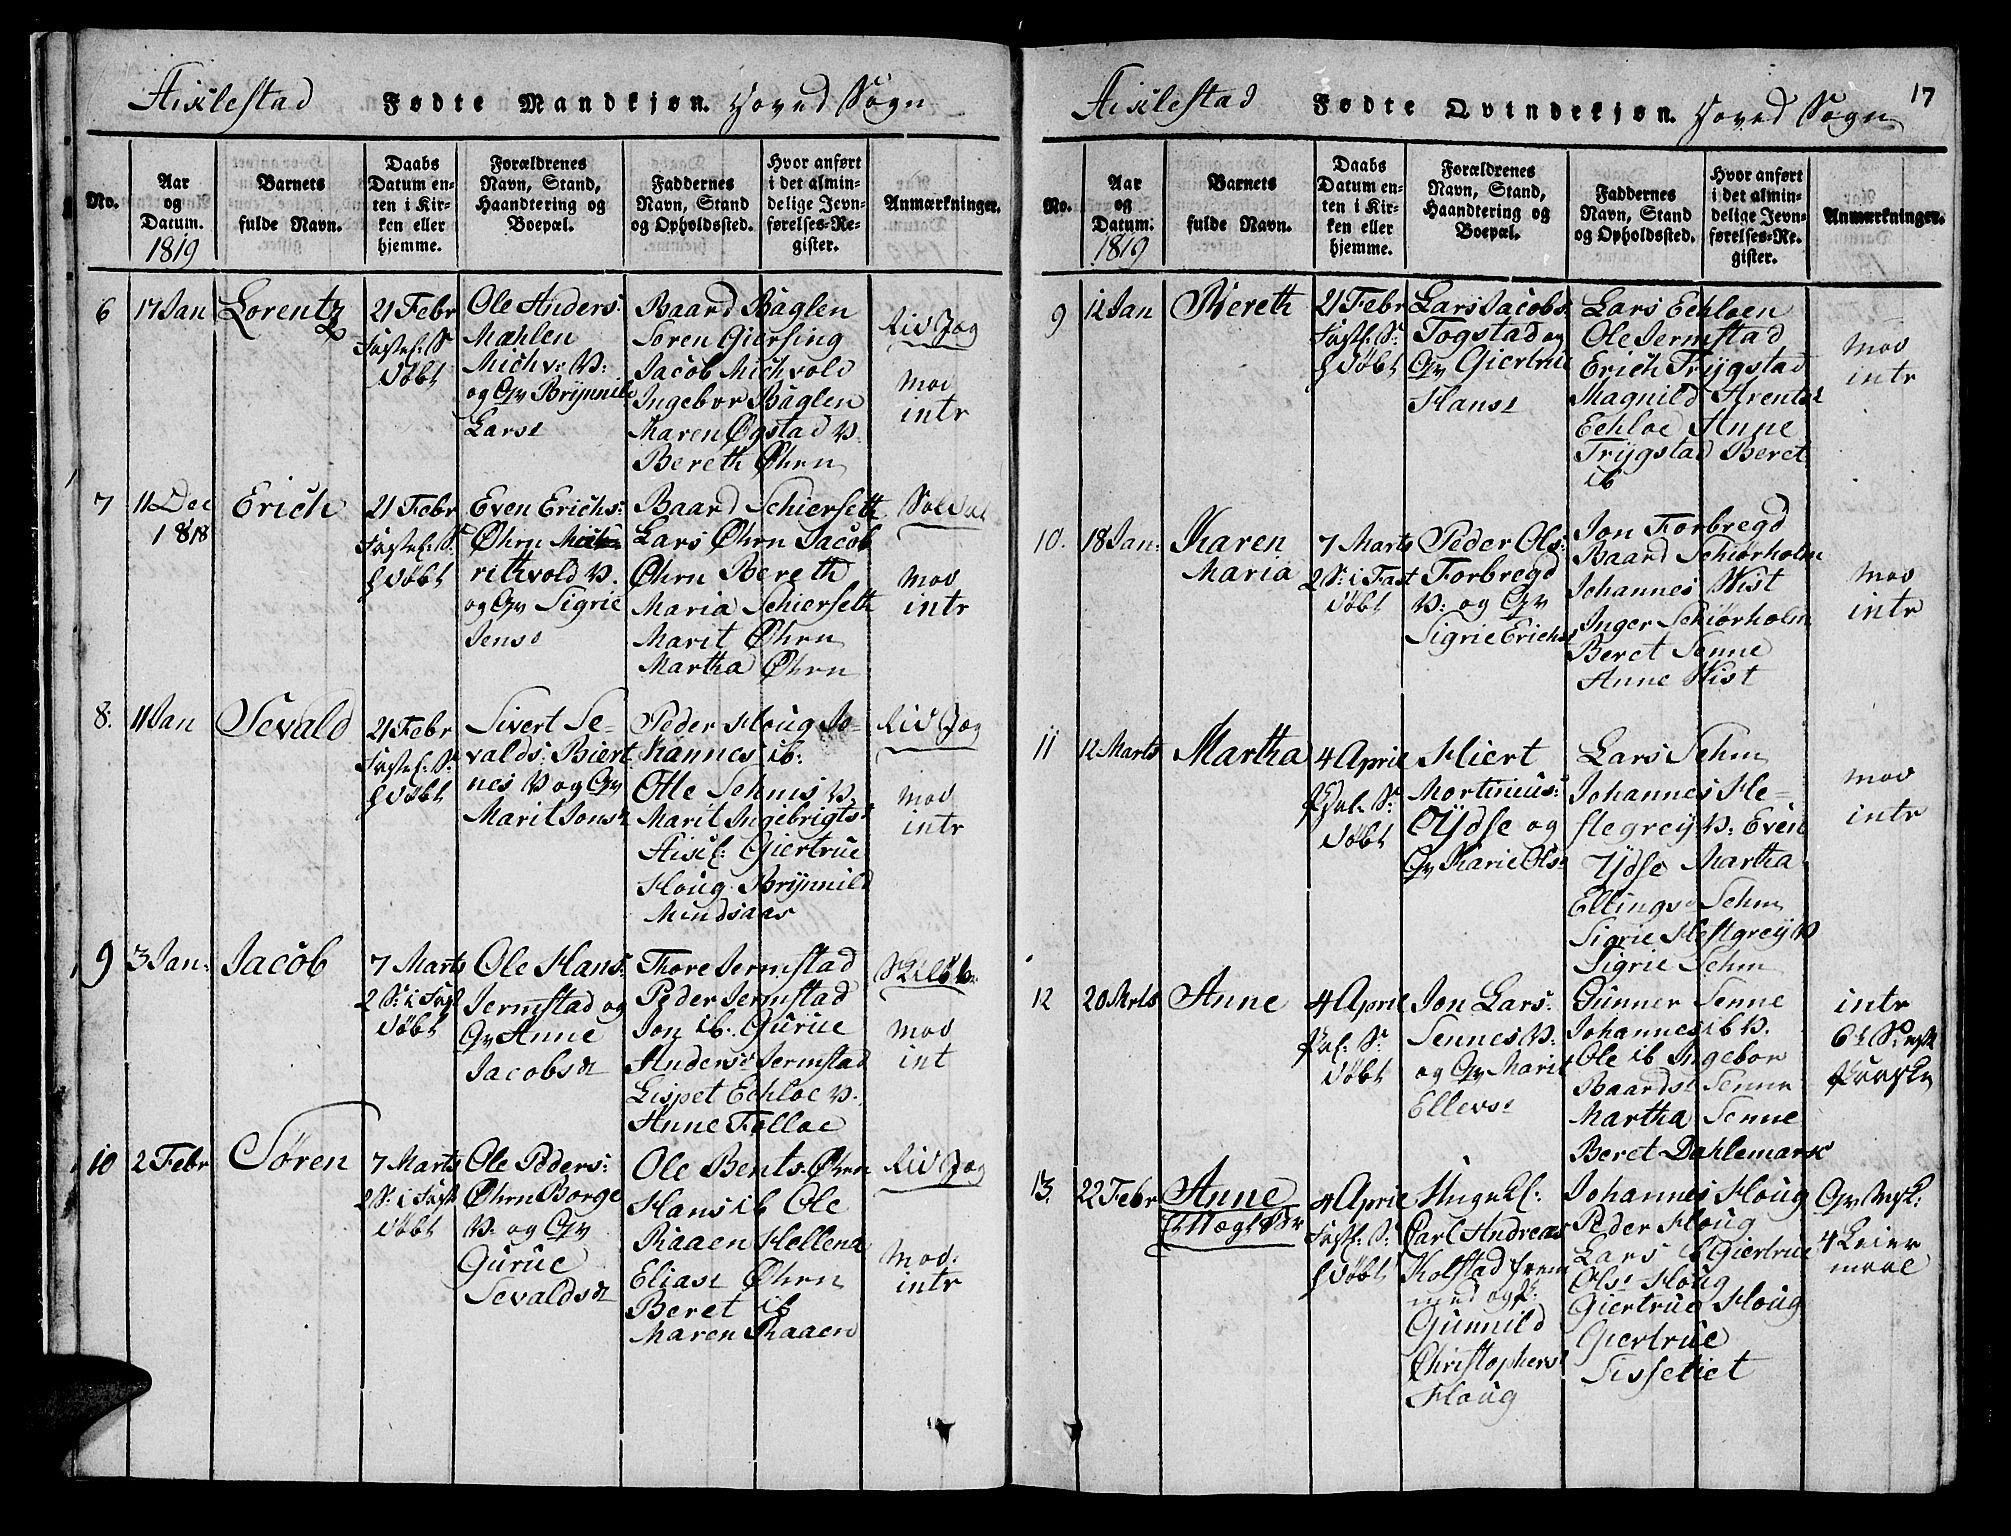 Aixlestad Fødte Mandkjøn. Hoved Sogn
No.
Aar og Datum. 1819
Barnets fulde Navn.
Daabs Datum enten i Kirken eller hjemme.
Forældrenes Navn, Stand, Haandtering og Boepæl.
Faddernes Navn, Stand og Opholdssted.
Hvor anført i det almindelige Jevnførelses-Register.
Anmærkninger.
6
17 Jan
Lorentz
21 Febr
døbt
Ole Anders:
Mæhlen
Mich v: P:
og Qv Brynnild
Larsd
Baard Baglen
Søren Giersing
Jacob Michvold
Ingebor Baglen
Maren Øgstad P.
Bereth Øhrn
Rid Jæg
mod
intr
7
11 Dec
1818
Erich
21 Febr
døbt
Even Erichs:
Øhrn
rithvold P.
og Qv Sigrie
Jensd
Baard Schierseth
Lars Øhrn Jacob
Øhrn Bereth
Maria Schierseth
Marit Øhrn
Martha Øhrn
Soldat
mod
intr
8:
11 Jan
Sevald
21 Febr
døbt
Sivert Se-
valds: Biert
nes P og Qv
Marit Jonsd
Peder Houg Jo-
hannes ib:
Otte Sehms P.
Marit Ingebrigtsd
Aixl: Giertrue
Houg Brynnild
Mindsaas
Rid Jæg
mod
intr
9
3 Jan:
Jacob
7 Marts
2 S: i Fast
døbt
Ole Hans:
Jermstad og
Qv Anne
Jacobsd
Thore Jermstad
Peder Jermstad
Jon ib. Gurue
Andersd Jermstad
Lispet Echloe P.
Anne Folloe
mod
int
10
2 Febr
Søren
7 Marts
2 S: i Fast
døbt
Ole Peders:
Øhrn Borge
P: og Qv
Gurue
Sevaldsd
Ole Bents: Øhrn
Hans ib Ole
Raaen Hellena
Eliasd Øhrn
Beret ib
Maren Raaen
Rid Jæg
mod.
intr
Aixlestad Fødte Qvindekjøn. Hoved Sogn
17
No.
Aar og Datum. 1819
Barnets fulde Navn.
Daabs Datum enten i Kirken eller hjemme.
Forældrenes Navn, Stand, Haandtering og Boepæl.
Faddernes Navn, Stand og Opholdssted.
Hvor anført i det almindelige Jevnførelses-Register.
Anmærkninger.
9
12 Jan
Bereth
21 Febr
døbt
Lars Jacobs:
Togstad og
Qv Giertrue
Hansd
Lars Echloen
Ole Jermstad
Erich Trygstad
Magnild Arentsd
Echloe Anne
Trygstad Beret
ib
mod
intr
10.
18 Jan:
Karen
Maria
7 Marts
2 S: i Fast
døbt
Peder Ols:
Forbregd
P: og Qv
Sigrie Erichsd
Jon Forbregd
Baard Schiørholm
Johannes Wist
Inger Schiørholm
Beret Senne
Anne Wist
mod
intr
11
12 Marts
Martha
4 April
Pal: S:
døbt
Hiert
Mortinius:
Ydse og
Qv Marie Olsd
Lars Sehm
Johannes He-
stegrey P: Even
Ydse Martha
Ellingsd Sehm
Sigrie Hestgrey P
Sigrie Sehm
mod
intr
12
20 Mrts
Anne
4 April
Pal: S:
døbt
Jon Lars:
Sennes P:
og Qv Marit
Ellevsd
Gunner Senne
Johannes ib P.
Ole ib Ingebor
Baardsd Senne
Martha Senne
Beret Dahlemarsk
intr
13.
22 Febr
Anne
4 April
døbt
Ungkl:
Carl Andreas
Kolstad frem
med og p:
Gunnild
Christophersd
Houg
Johannes Houg
Peder Houg
Lars ib Giertrue
Olsd Houg
Giertrue Houg
Giertrue
Tissetiet
4 Leier
maal